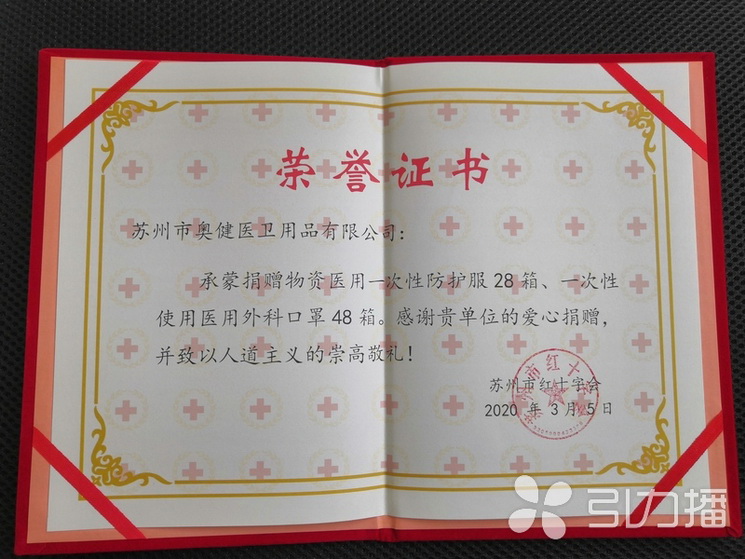 荣誉证书
苏州市奥健医卫用品有限公司：
承蒙捐赠物资医用一次性防护服28箱、一次性
使用医用外科口罩48箱。感谢贵单位的爱心捐赠，
并致以人道主义的崇高敬礼！
苏州市红十字会
2020 年 3 月 5 日
引力播